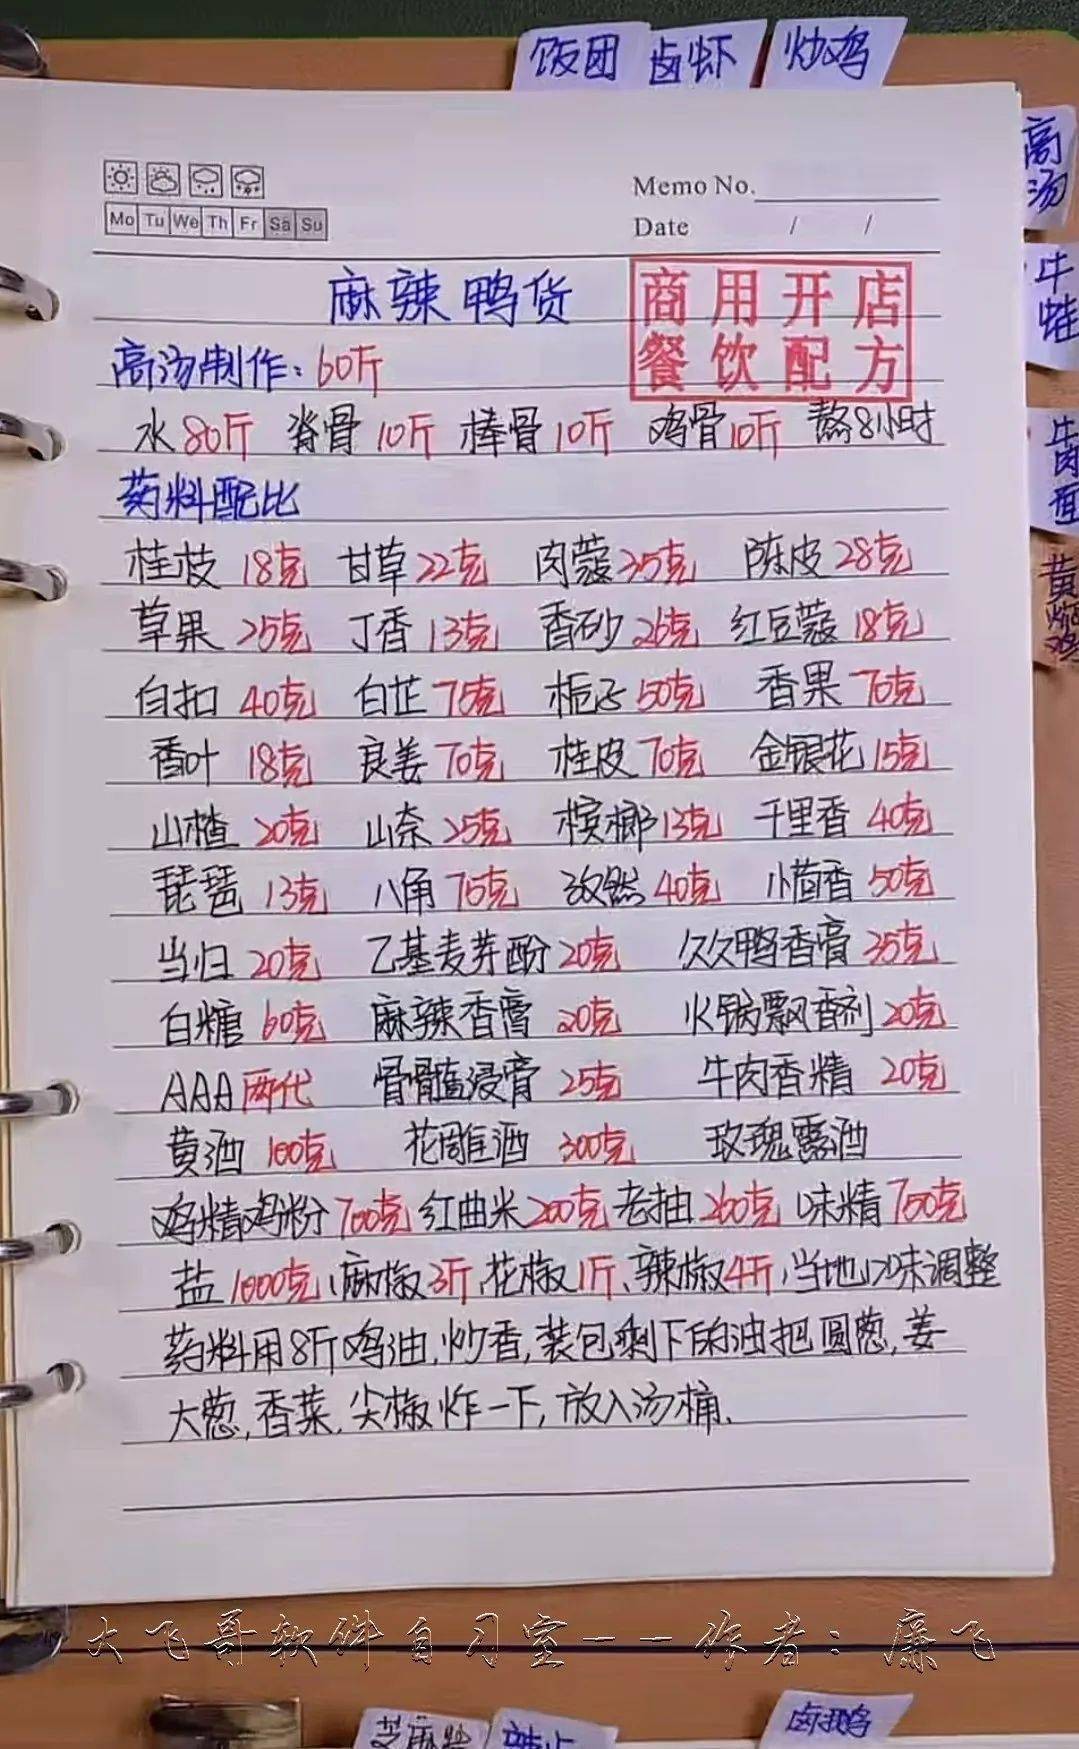 饭团 卤虾 炒鸡
高汤
牛蛙
牛肉面
黄焖鸡
Memo No.
Mo Tu We Th Fr Sa Su
Date / /
麻辣鸭货
商用开店
餐饮配方
高汤制作：60斤
水80斤 脊骨10斤 棒骨10斤 鸡骨10斤 熬8小时
药料配比
桂枝18克 甘草22克 肉蔻35克 陈皮28克
草果25克 丁香13克 香砂26克 红豆蔻18克
白扣40克 白芷75克 栀子50克 香果70克
香叶18克 良姜70克 桂皮70克 金银花15克
山楂20克 山奈25克 槟榔13克 千里香40克
琵琶13克 八角75克 孜然40克 小茴香50克
当归20克 乙基麦芽酚20克 久久鸭香膏35克
白糖60克 麻辣香膏20克 火锅飘香剂20克
AAA两代 骨髓浸膏25克 牛肉香精20克
黄酒100克 花雕酒300克 玫瑰露酒
鸡精鸡粉700克 红曲米200克 老抽260克 味精700克
盐1000克、麻椒3斤、花椒1斤、辣椒4斤、当地口味调整
药料用8斤鸡油,炒香,装包剩下的油把圆葱,姜
大葱,香菜,尖椒炸一下,放入汤桶.
大飞哥软件自习室--作者：廉飞
卤鹅